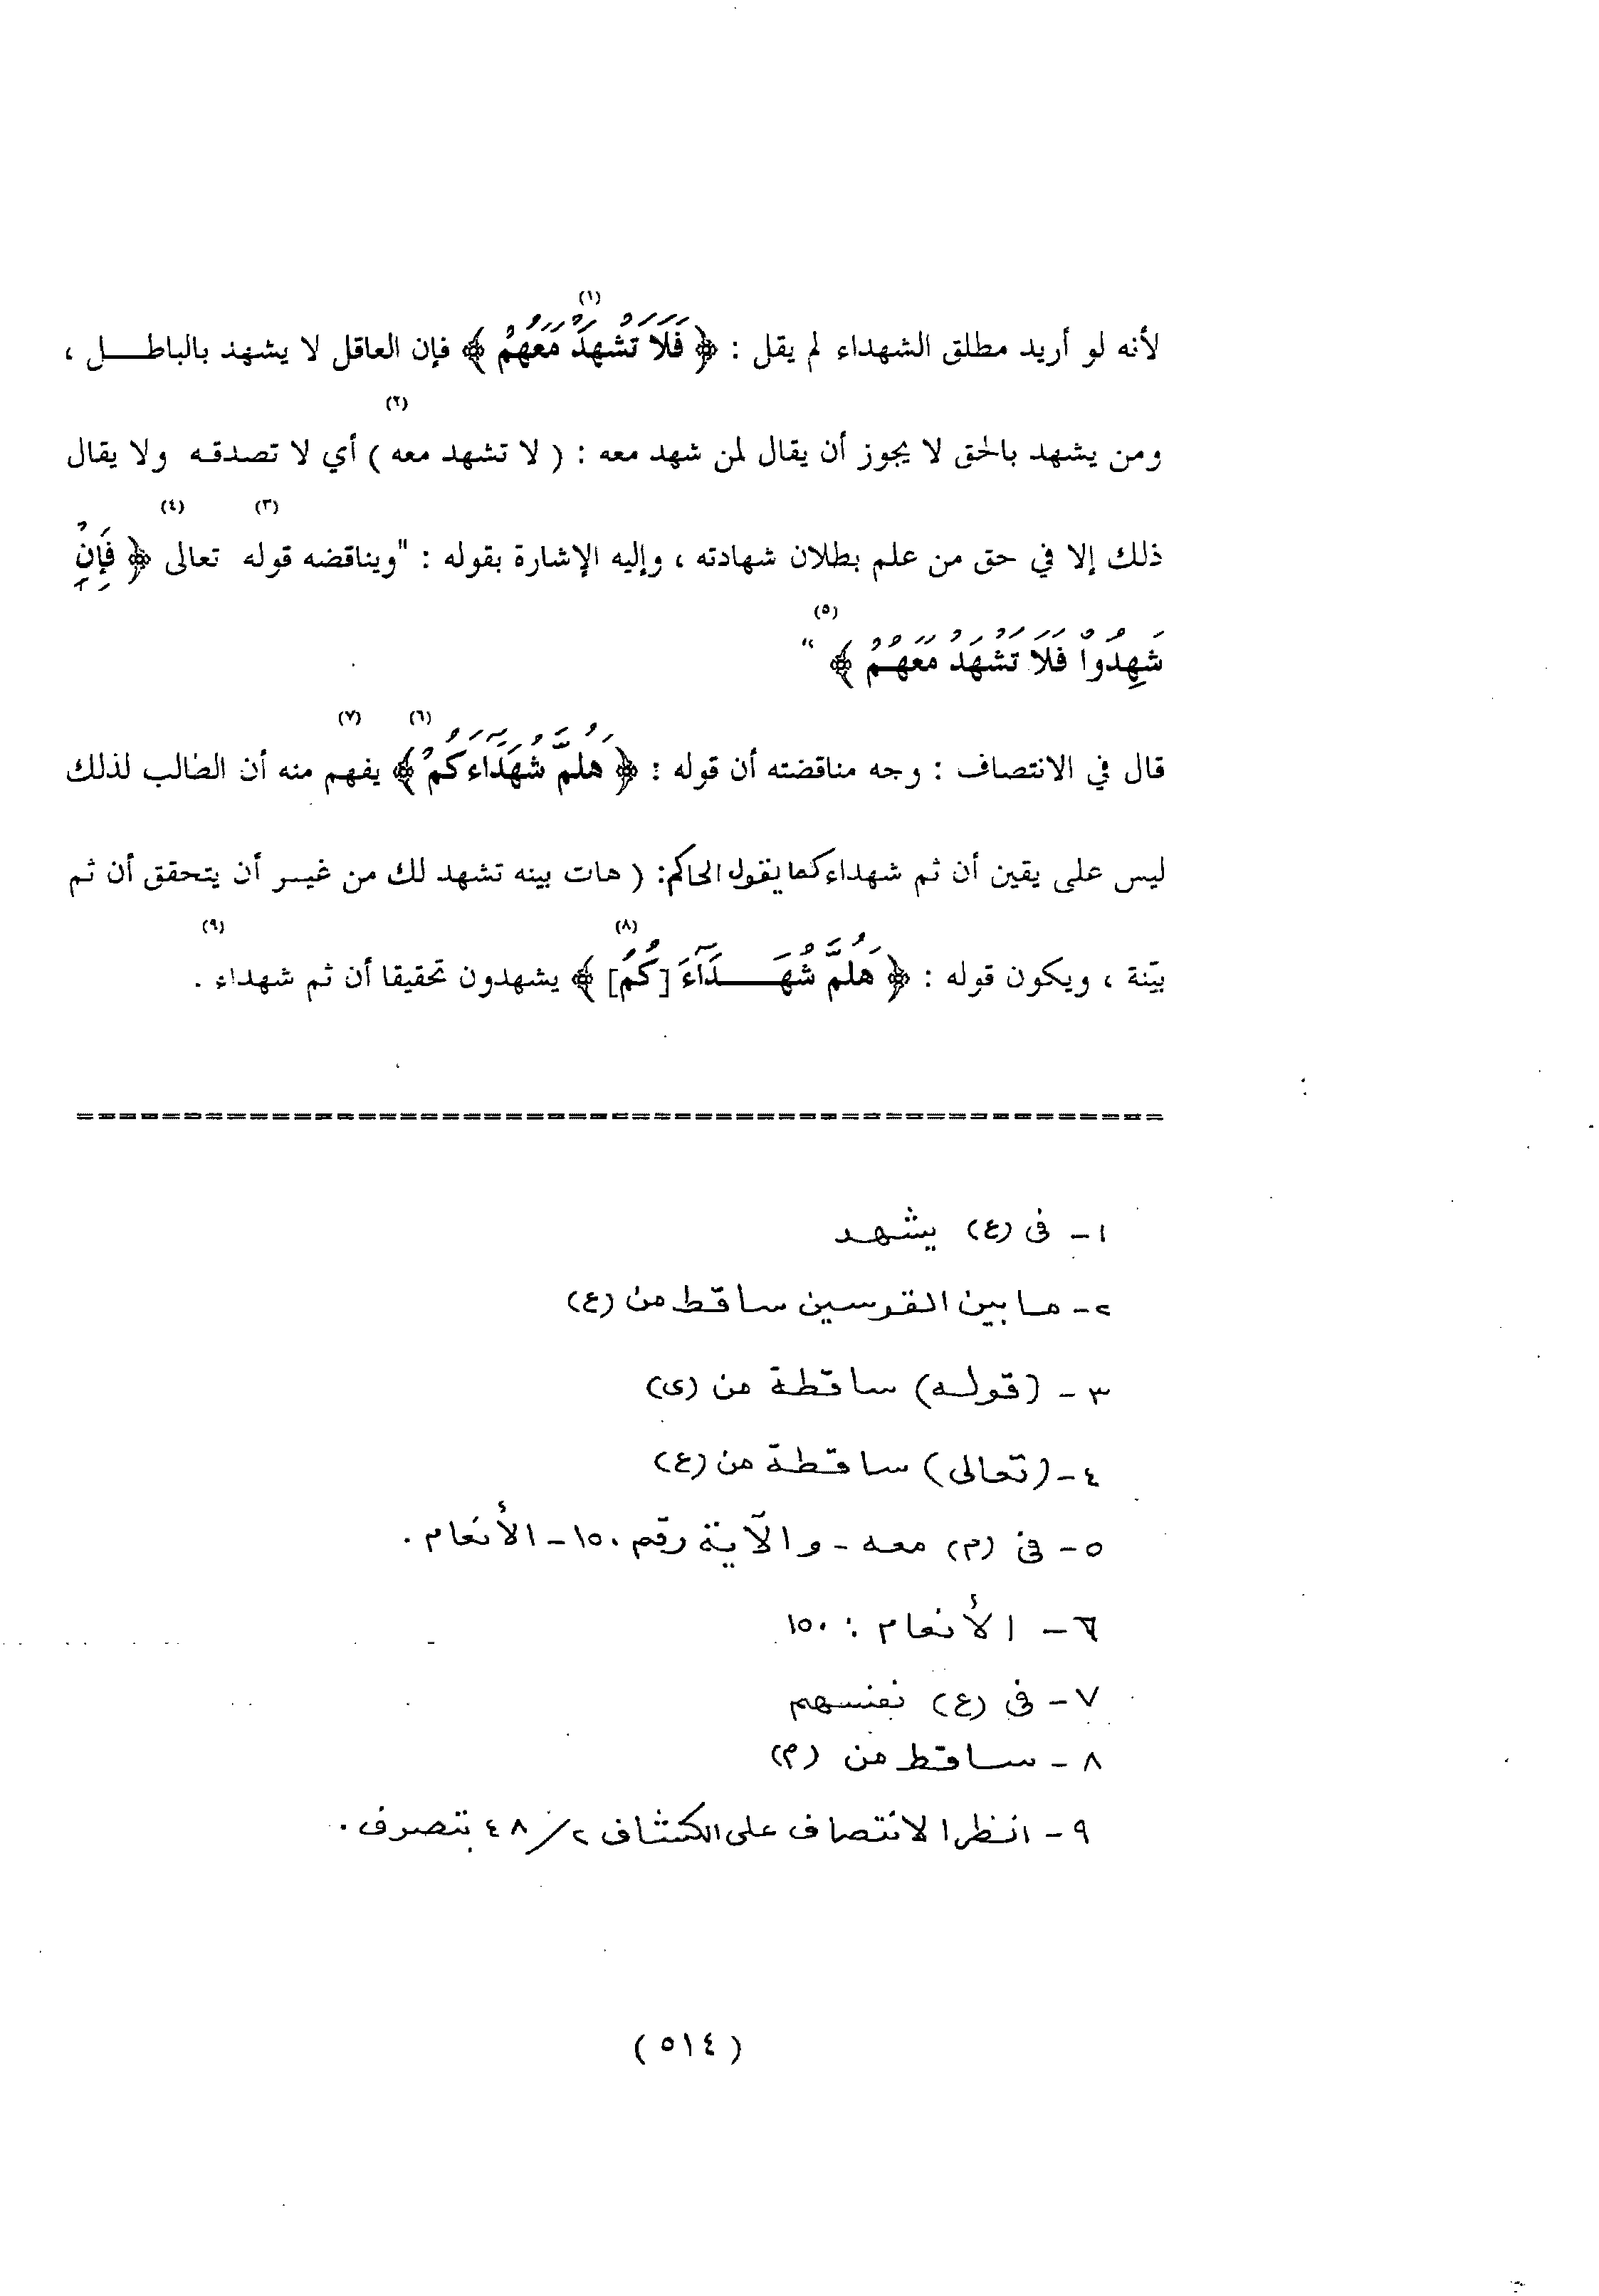 لأنه لو أريد مطلق الشهداء لم يقل : ﴿ فَلَا تَشْهَدْ (١) مَعَهُمْ ﴾ فإن العاقل لا يشهد بالباطــــل ،
ومن يشهد بالحق لا يجوز أن يقال لمن شهد معه : ( لا تشهد معه ) (٢) أي لا تصدقـه ولا يقال
ذلك إلا في حق من علم بطلان شهادته ، وإليه الإشارة بقوله : "ويناقضه قوله (٣) تعالى (٤) ﴿ فَإِنْ
شَهِدُوا فَلَا تَشْهَدْ مَعَهُمْ (٥) ﴾ "
قال في الانتصاف : وجه مناقضته أن قوله : ﴿ هَلُمَّ شُهَدَاءَكُمُ ﴾ (٦) يفهم (٧) منه أن الطالب لذلك
ليس على يقين أن ثم شهداء كما يقول الحاكم: ( هات بينه تشهد لك من غيـر أن يتحقق أن ثم
بيّنة ، ويكون قوله : ﴿ هَلُمَّ شُهَـــدَآءَ [كُمُ] (٨) ﴾ يشهدون تحقيقا أن ثم شهداء (٩) .
١ - فى (ع) يشهد
٢ - ما بين القوسين ساقط من (ع)
٣ - (قوله) ساقطة من (ى)
٤ - (تعالى) ساقطة من (ع)
٥ - فى (م) معه - والآية رقم ١٥٠ - الأنعام .
٦ - الأنعام : ١٥٠
٧ - فى (ع) نفسهم
٨ - ساقط من (م)
٩ - انظر الانتصاف على الكشاف ٢/ ٤٨ بتصرف .
( ٥١٤ )